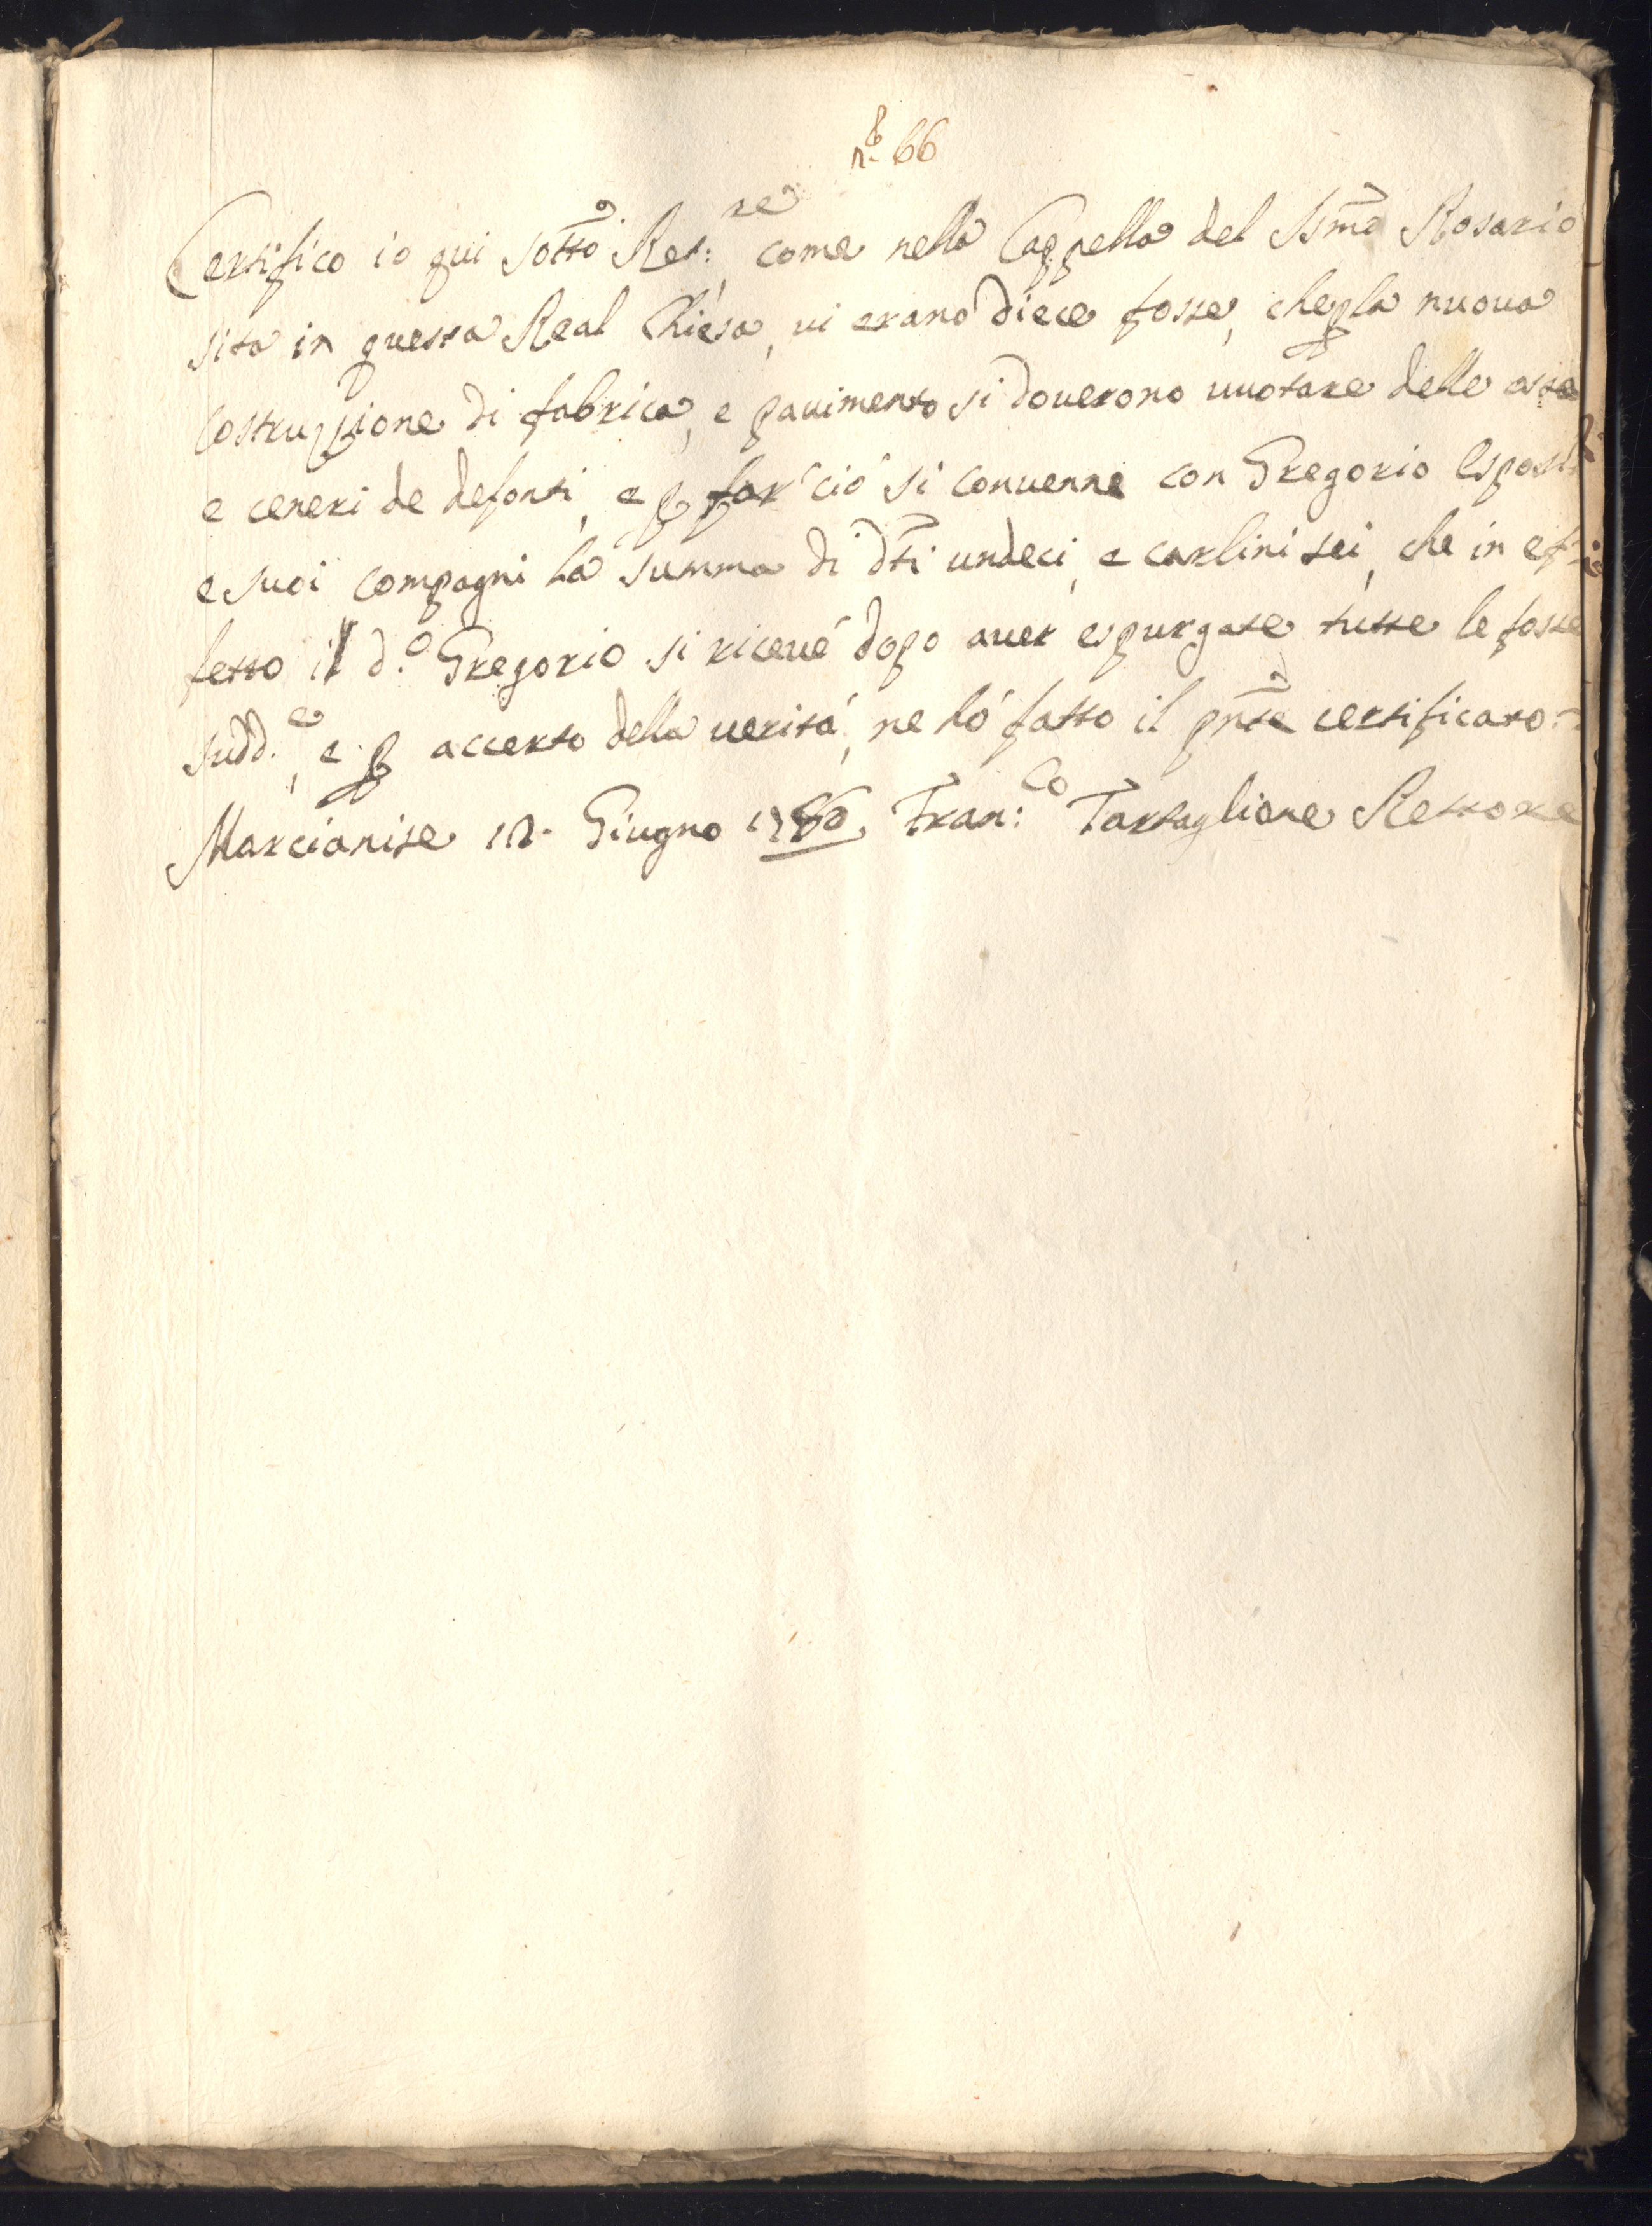 n.º 66
Certifico io qui sottõ Ret:re come nella Cappella del SSmõ Rosario
sita in questa Real Chiesa, vi erano diece fosse, che p la nuova
costruzzione di fabrica, e pavimento si doverono vuotare delle ossa
e ceneri de defonti, e p far ciò si convenne con Gregorio Esposit
e suoi compagni la summa di dti undeci, e carlini sei, che in ef-
fetto il d.o Gregorio si ricevé dopo aver espurgate tutte le fosse
sudd.e, e p accerto della verità, ne hó fatto il pnte certificato:-
Marcianise 12. Giugno Fran:co Tartaglione Rettore